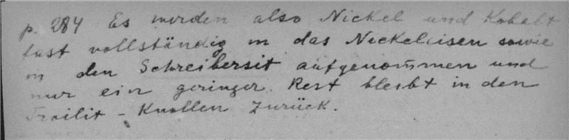 p. 284 Es werden also Nickel und Kobalt
fast vollständig in das Nickeleisen sowie
in den Schreibersit aufgenommen und
nur ein geringer Rest bleibt in den
Troilit - Knollen zurück.